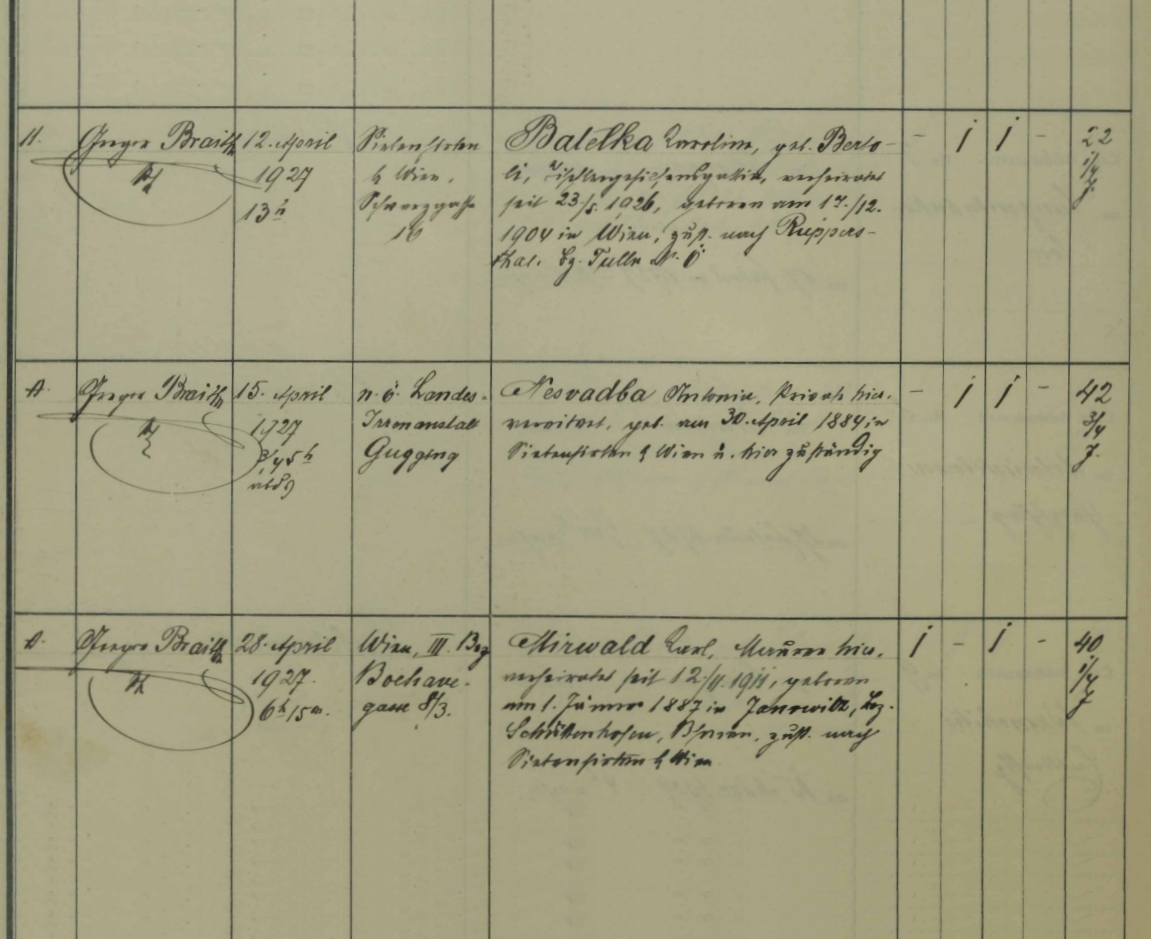 Gregor Braith
12. April
1927
13 h
Siebenhirten
b/ Wien,
Schwarzgasse
16
Batelka Karoline, geb. Berto-
li, Tischlergehilfensgattin, verheiratet
seit 23./5. 1926, geboren am 17./12.
1904 in Wien, zust. nach Ruppers-
thal. Bz. Tulln N. Ö
- 1 1 -
22
1/4
J.
Gregor Braith
15. April
1927
3/4 5 h
abds
n. ö. Landes-
Irrenanstalt
Gugging
Nesvadba Antonia, Private hier.
verwitwet, geb. am 30. April 1884 in
Siebenhirten b/ Wien u. hier zuständig
- 1 1 -
42
3/4
J.
Gregor Braith
28. April
1927.
6 h 15 m.
Wien, III. Bez
Boehave-
gasse 8/3.
Mirwald Karl, Maurer hier.
verheiratet seit 12./11. 1911, geboren
am 1. Jänner 1887 in Janowitz, Bez.
Schüttenhofen, Böhmen, zust. nach
Siebenhirten b/ Wien
1 - 1 -
40
1/4
J